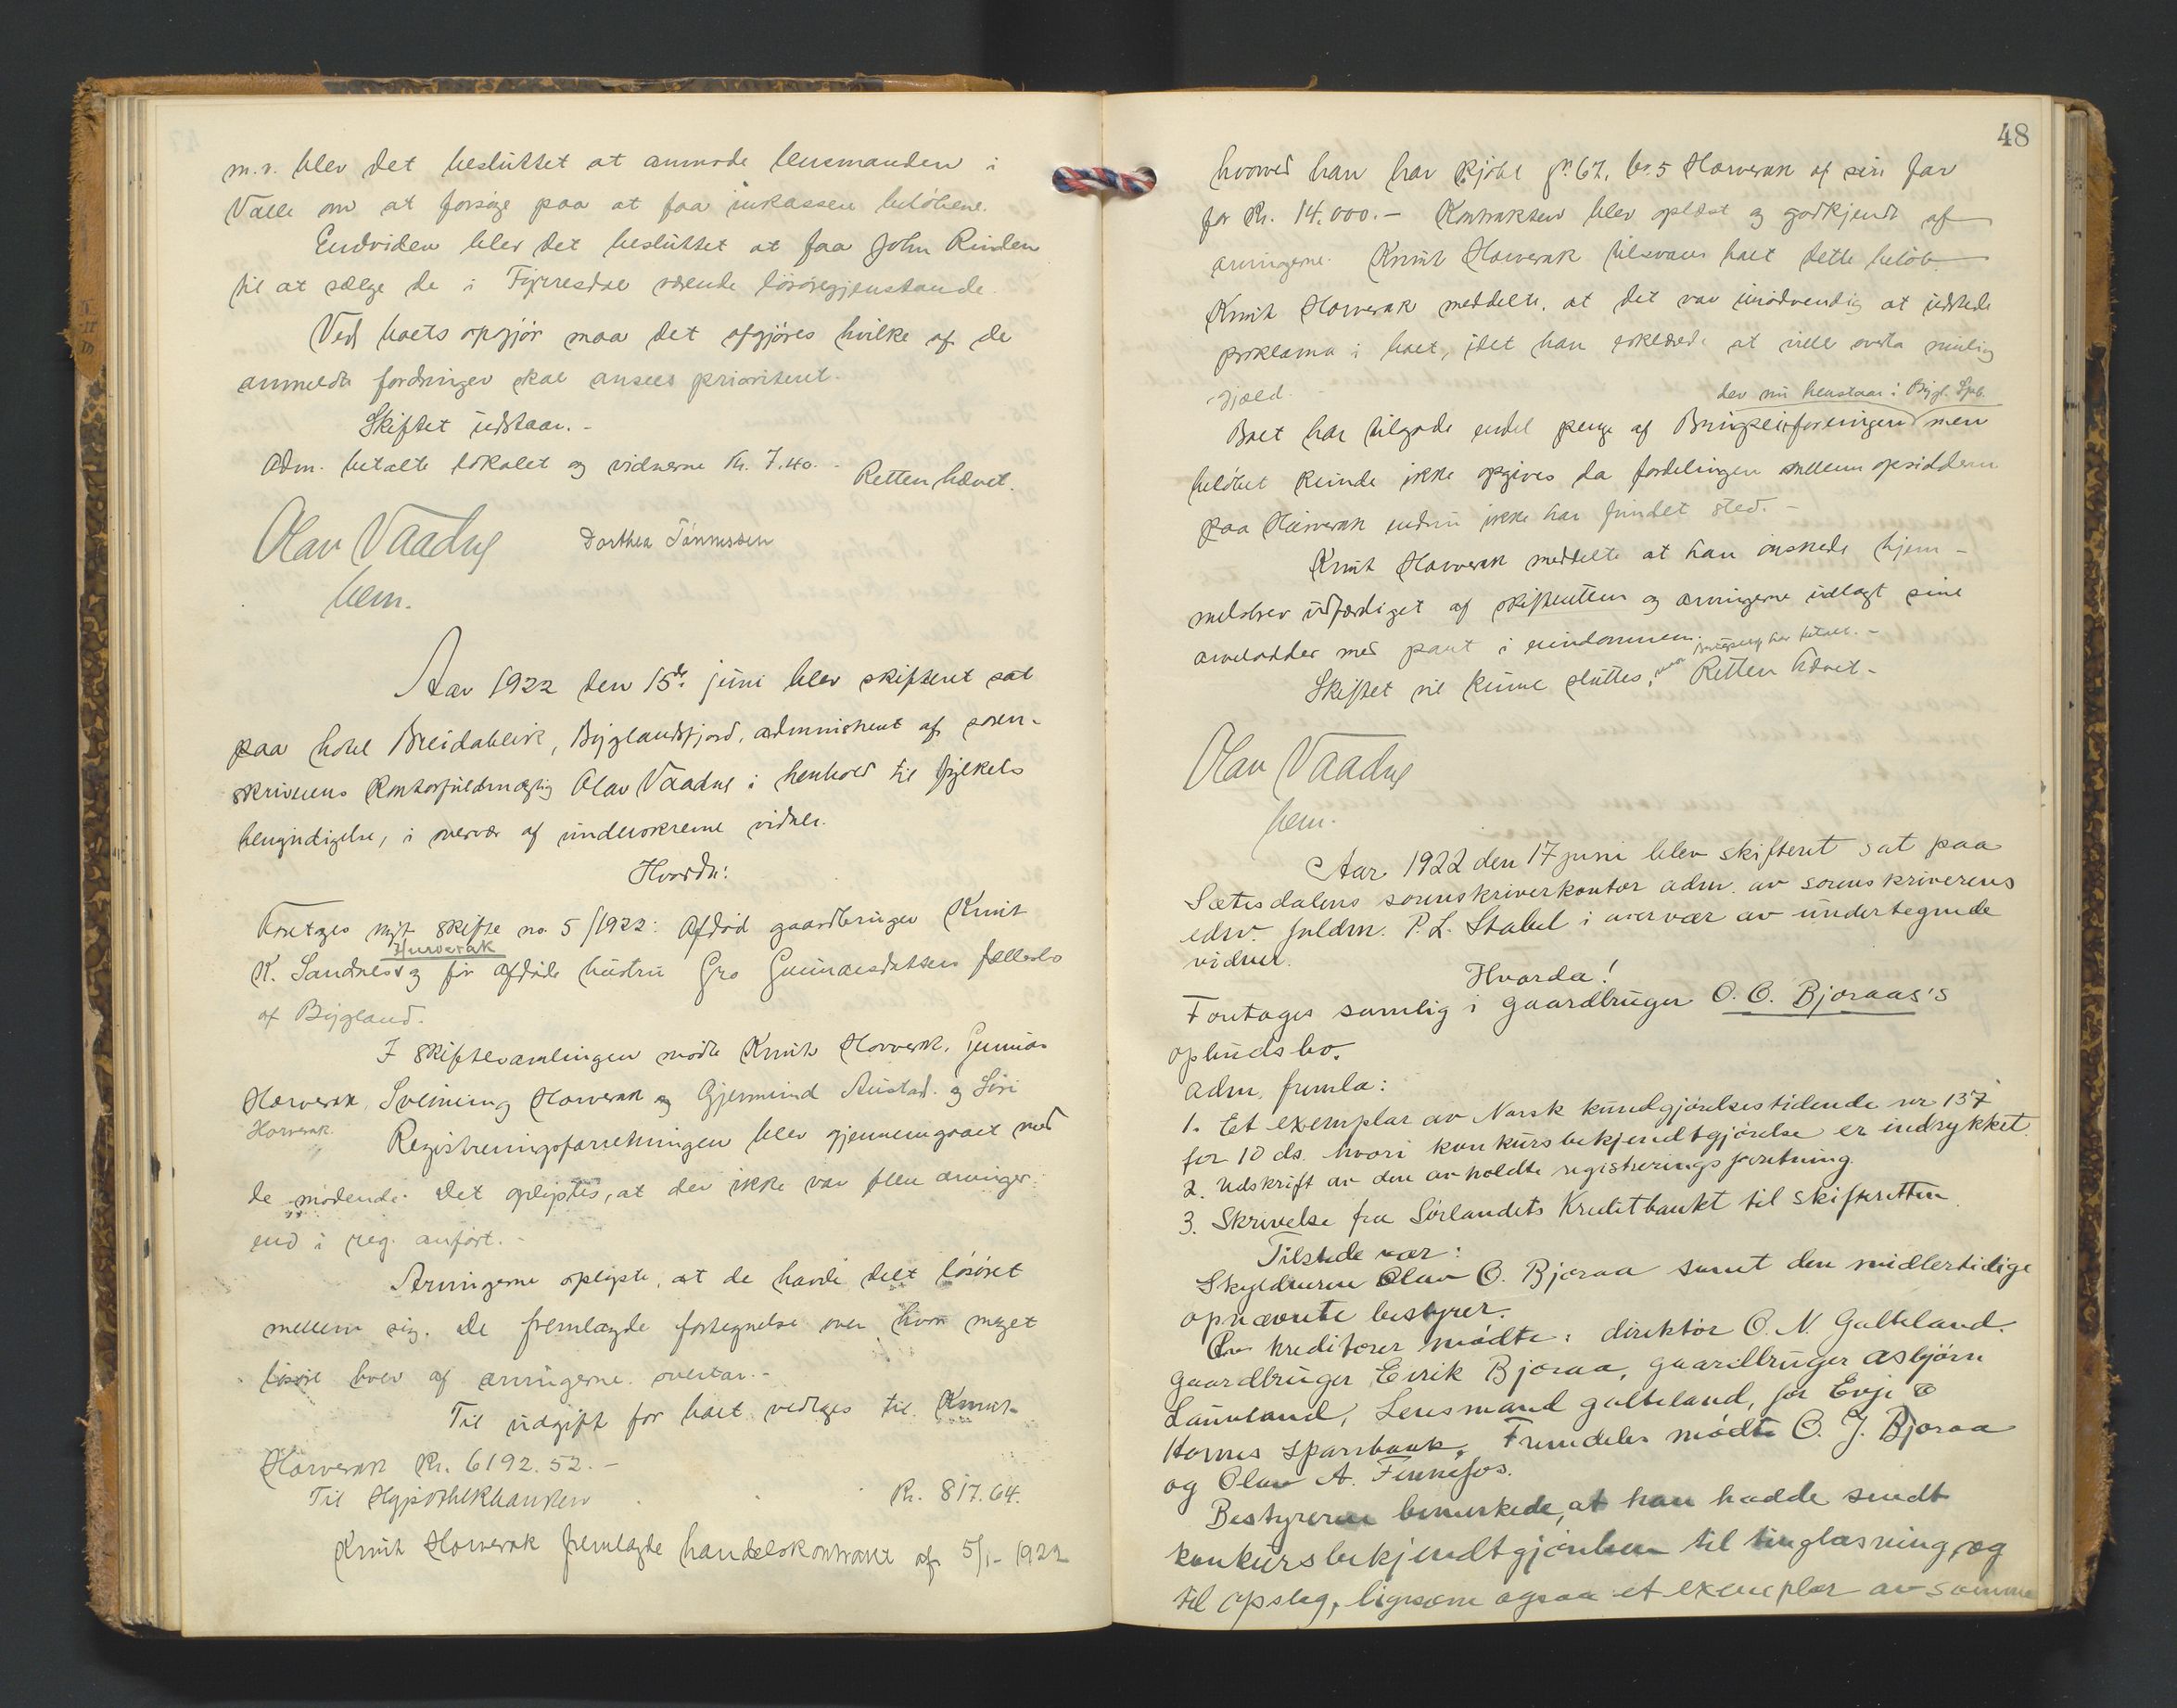 m.v. blev det besluttet at anmode lensmanden i
Valle om at forsøge paa at faa inkassere beløbene.
Endvidere blev det besluttet at faa John Rinden
til at sælge de i Fyrresdal værende løsøregjenstande.
Ved boets opgjør maa det afgjøres hvilke af de
anmeldte fordringer skal ansees prioritert.
Skiftet udstaar. -
Adm. betalte lokalet og vidnerne Kr. 7.40. -
Retten hævet.
Olav Vaadne
bem.
Dorthea Tønnessen
Aar 1922 den 15de juni blev skifteret sat
paa hotel Breidablik, Byglandsfjord, administrert af soren-
skriverens kontorfuldmægtig Olav Vaadne i henhold til fylkets
bemyndigelse, i overvær af underskrevne vidner.
Hvorda:
Foretages nyt skifte no. 5/1922: Afdød gaardbruger Knut
Horverak
K. Sandnes og før afdøde hustru Gro Gunnarsdatters fællesbo
af Bygland.
I skiftesamlingen mødte Knut Horverak, Gunnar
Horverak, Sveinung Horverak og Gjermund Austad. og Siri
Horverak.
Registreringsforretningen blev gjennemgaaet med
de mødende. Det oplystes, at der ikke var flere arvinger
end i reg. anført. -
Arvingerne oplyste, at de havde delt løsøret
mellem sig. De fremlagde fortegnelse over hvor meget
løsøre hver af arvingerne overtar. -
Til udgift for boet vedtages til Knut
Horverak Kr. 6192.52. -
Til Hypothekbanken Kr. 817.64.
Knut Horverak fremlagde handelskontrakt af 5/1- 1922
48
hvorved han har kjøbt gr. 67, br. 5 Horverak af sin far
for Kr. 14.000.- Kontrakten blev oplæst og godkjendt af
arvingerne. Knut Horverak tilsvarer boet dette beløb.
Knut Horverak meddelte, at det var unødvendig at udstede
proklama i boet, idet han erklærede at ville overta mulig
gjæld. -
der nu henstaar i Bygl. Spb.
Boet har tilgode endel penge af Brugseierforeningen men
beløbet kunde ikke opgives da fordelingen mellem opsidderne
paa Horverak endnu ikke har fundet sted. -
Knut Horverak meddelte at han ønskede hjem-
melsbrev udfærdiget af skifteretten og arvingerne udlagt sine
arvelodder med pant i eiendommen.
Skiftet vil kunne sluttes, naar har betalt. -
Retten hævet -
Olav Vaadne
bem.
Aar 1922 den 17 juni blev skifteret sat paa
Sætesdalens sorenskriverkontor adm. av sorenskriverens
edsv. fuldm. P. L. Stabel i overvær av undertegnede
vidner.
Hvorda!
Foretages samling i gaardbruger O. O. Bjoraas's
opbudsbo.
Adm. fremla:
1. Et exemplar av Norsk kundgjørelsestidende nr 137
for 10 ds. hvori konkursbekjendtgjørelse er indrykket.
2. Udskrift av den avholdte registreringsforretning.
3. Skrivelse fra Sørlandets Kreditbankt til skifteretten
Tilstede var:
Skyldneren Olav O. Bjoraa samt den midlertidige
opnævnte bestyrer.
Av kreditorer mødte: direktør O. N. Galteland.
gaardbruger Eirik Bjoraa, gaardbruger Asbjørn
Launland, Lensmand galteland, for Evje &
Hornes sparebank. Fremdeles mødte O. J. Bjoraa
og Olav A. Fennefos.
Bestyreren bemerkede, at han hadde sendt
konkursbekjendtgjørelsen til tinglæsning, og
til opslag, ligesom ogsaa et exemplar av samme